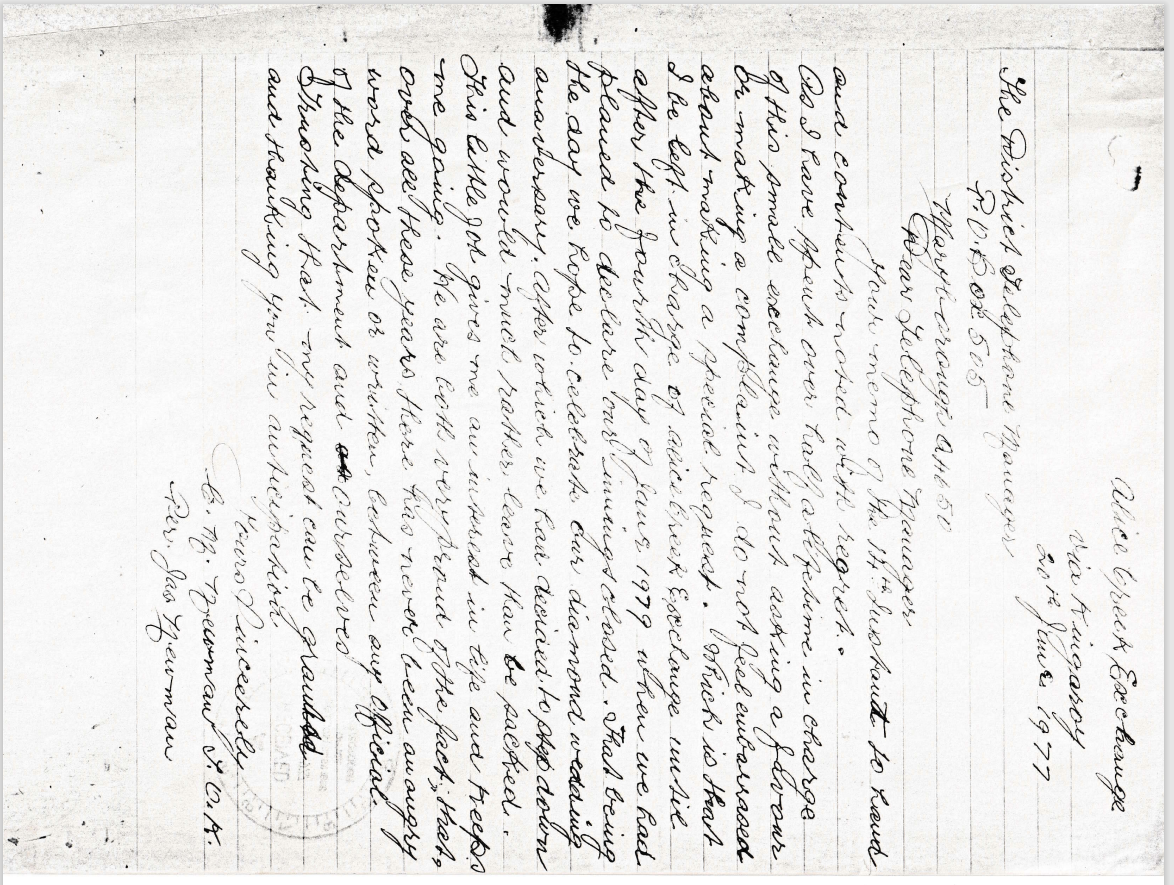 Alice Creek Exchange
Via Kingaroy
20th June. 1977
The District Telephone Manager
P.O. Box 505
Maryborough Qld 4650
Dear Telephone Manager
Your memo of the 17th Instant to hand
and contents noted with regret.
As I have spent over half a lifetime in charge
of this small exchange without asking a favour
or making a complaint I do not feel embarrassed
about making a special request. Which is that
I be left in charge of alicecreek Exchange until
after the fourth day of June 1979 when we had
planed to declare our innings closed. That being
the day we hope to celebrate our diamond wedding
anaversary. after which we had decided to step down
and would much rather leave than be sacked.
This little job gives me an interest in life and keeps
me going. We are both very proud of the fact, that,
over all these years there has never been an angry
word spoken or written, between any Official.
of the department and ourselves
Trusting that. my request can be granted
and thanking you in anticipation
Yours Sincerely
C. M. Newman P.O.K.
Per. Jas Newman